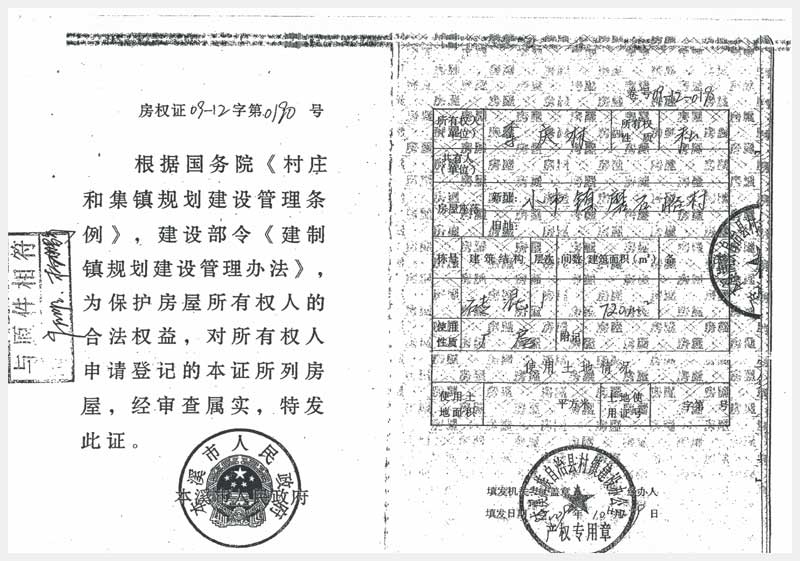 房权证09-12字第0190号
根据国务院《村庄
和集镇规划建设管理条
例》，建设部令《建制
镇规划建设管理办法》，
为保护房屋所有权人的
合法权益，对所有权人
申请登记的本证所列房
屋，经审查属实，特发
此证。
本溪市人民政府
本溪市人民政府
与原件相符
卷号09-12-0190
所有权人（单位） 李庆林 所有权性质 私
共有人（单位）
房屋座落 新址： 小市镇磨石峪村
旧址：
栋号 建筑结构 层次 间数 建筑面积（m²） 备
砖混 1 720m²
使用性质 厂房 附记
使用土地情况
使用土地面积 平方米 土地使用证号 字第 号
填发机关 监章 经办人
填发日期 年 10 日
自治县村镇建设办公室
产权专用章